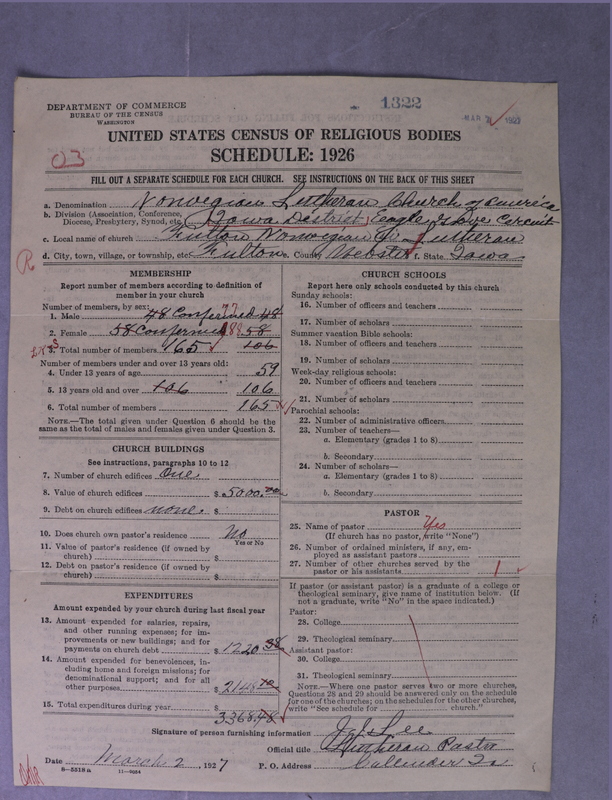 DEPARTMENT OF COMMERCE
BUREAU OF THE CENSUS
WASHINGTON
1322
MAR 1927
UNITED STATES CENSUS OF RELIGIOUS BODIES
SCHEDULE: 1926
03
FILL OUT A SEPARATE SCHEDULE FOR EACH CHURCH. SEE INSTRUCTIONS ON THE BACK OF THIS SHEET
a. Denomination Norwegian Lutheran Church of America
b. Division (Association, Conference, Diocese, Presbytery, Synod, etc.) (Iowa District) Eagle Grove Circuit
c. Local name of church Fulton Norwegian Lutheran
d. City, town, village, or township, etc. Fulton e. County Webster f. State Iowa
R
MEMBERSHIP
Report number of members according to definition of
member in your church
Number of members, by sex:
1. Male 48 Confermed 77 48
2. Female 58 Confermed 88 58
3. Total number of members 165 106
Number of members under and over 13 years old:
4. Under 13 years of age 59
5. 13 years old and over 106 106
6. Total number of members 165
NOTE.—The total given under Question 6 should be
same as the total of males and females given under Question 3.
CHURCH BUILDINGS
See instructions, paragraphs 10 to 12
7. Number of church edifices One
8. Value of church edifices $ 5000.00
9. Debt on church edifices none $
10. Does church own pastor's residence No
Yes or No
11. Value of pastor's residence (if owned by
church) $
12. Debt on pastor's residence (if owned by
church) $
EXPENDITURES
Amount expended by your church during last fiscal year
13. Amount expended for salaries, repairs,
and other running expenses; for im-
provements or new buildings; and for
payments on church debt $ 1220.38
14. Amount expended for benevolences, in-
cluding home and foreign missions; for
denominational support; and for all
other purposes $ 2148.10
15. Total expenditures during year
3368.48
CHURCH SCHOOLS
Report here only schools conducted by this church
Sunday schools:
16. Number of officers and teachers
17. Number of scholars
Summer vacation Bible schools:
18. Number of officers and teachers
19. Number of scholars
Week-day religious schools:
20. Number of officers and teachers
21. Number of scholars
Parochial schools:
22. Number of administrative officers
23. Number of teachers—
a. Elementary (grades 1 to 8)
b. Secondary
24. Number of scholars—
a. Elementary (grades 1 to 8)
b. Secondary
PASTOR
25. Name of pastor Yes
(If church has no pastor, write "None")
26. Number of ordained ministers, if any, em-
ployed as assistant pastors
27. Number of other churches served by the
pastor or his assistants 1
If pastor (or assistant pastor) is a graduate of a college or
theological seminary, give name of institution below. (If
not a graduate, write "No" in the space indicated.)
Pastor:
28. College
29. Theological seminary
Assistant pastor:
30. College
31. Theological seminary
NOTE.—Where one pastor serves two or more churches,
Questions 28 and 29 should be answered only on the schedule
for one of the churches; on the schedules for the other churches,
write "See schedule for church."
Signature of person furnishing information J. J. Lee
Official title Lutheran Pastor
Date March 2, 1927 P. O. Address Callender Ia
8—5518a 11—9064